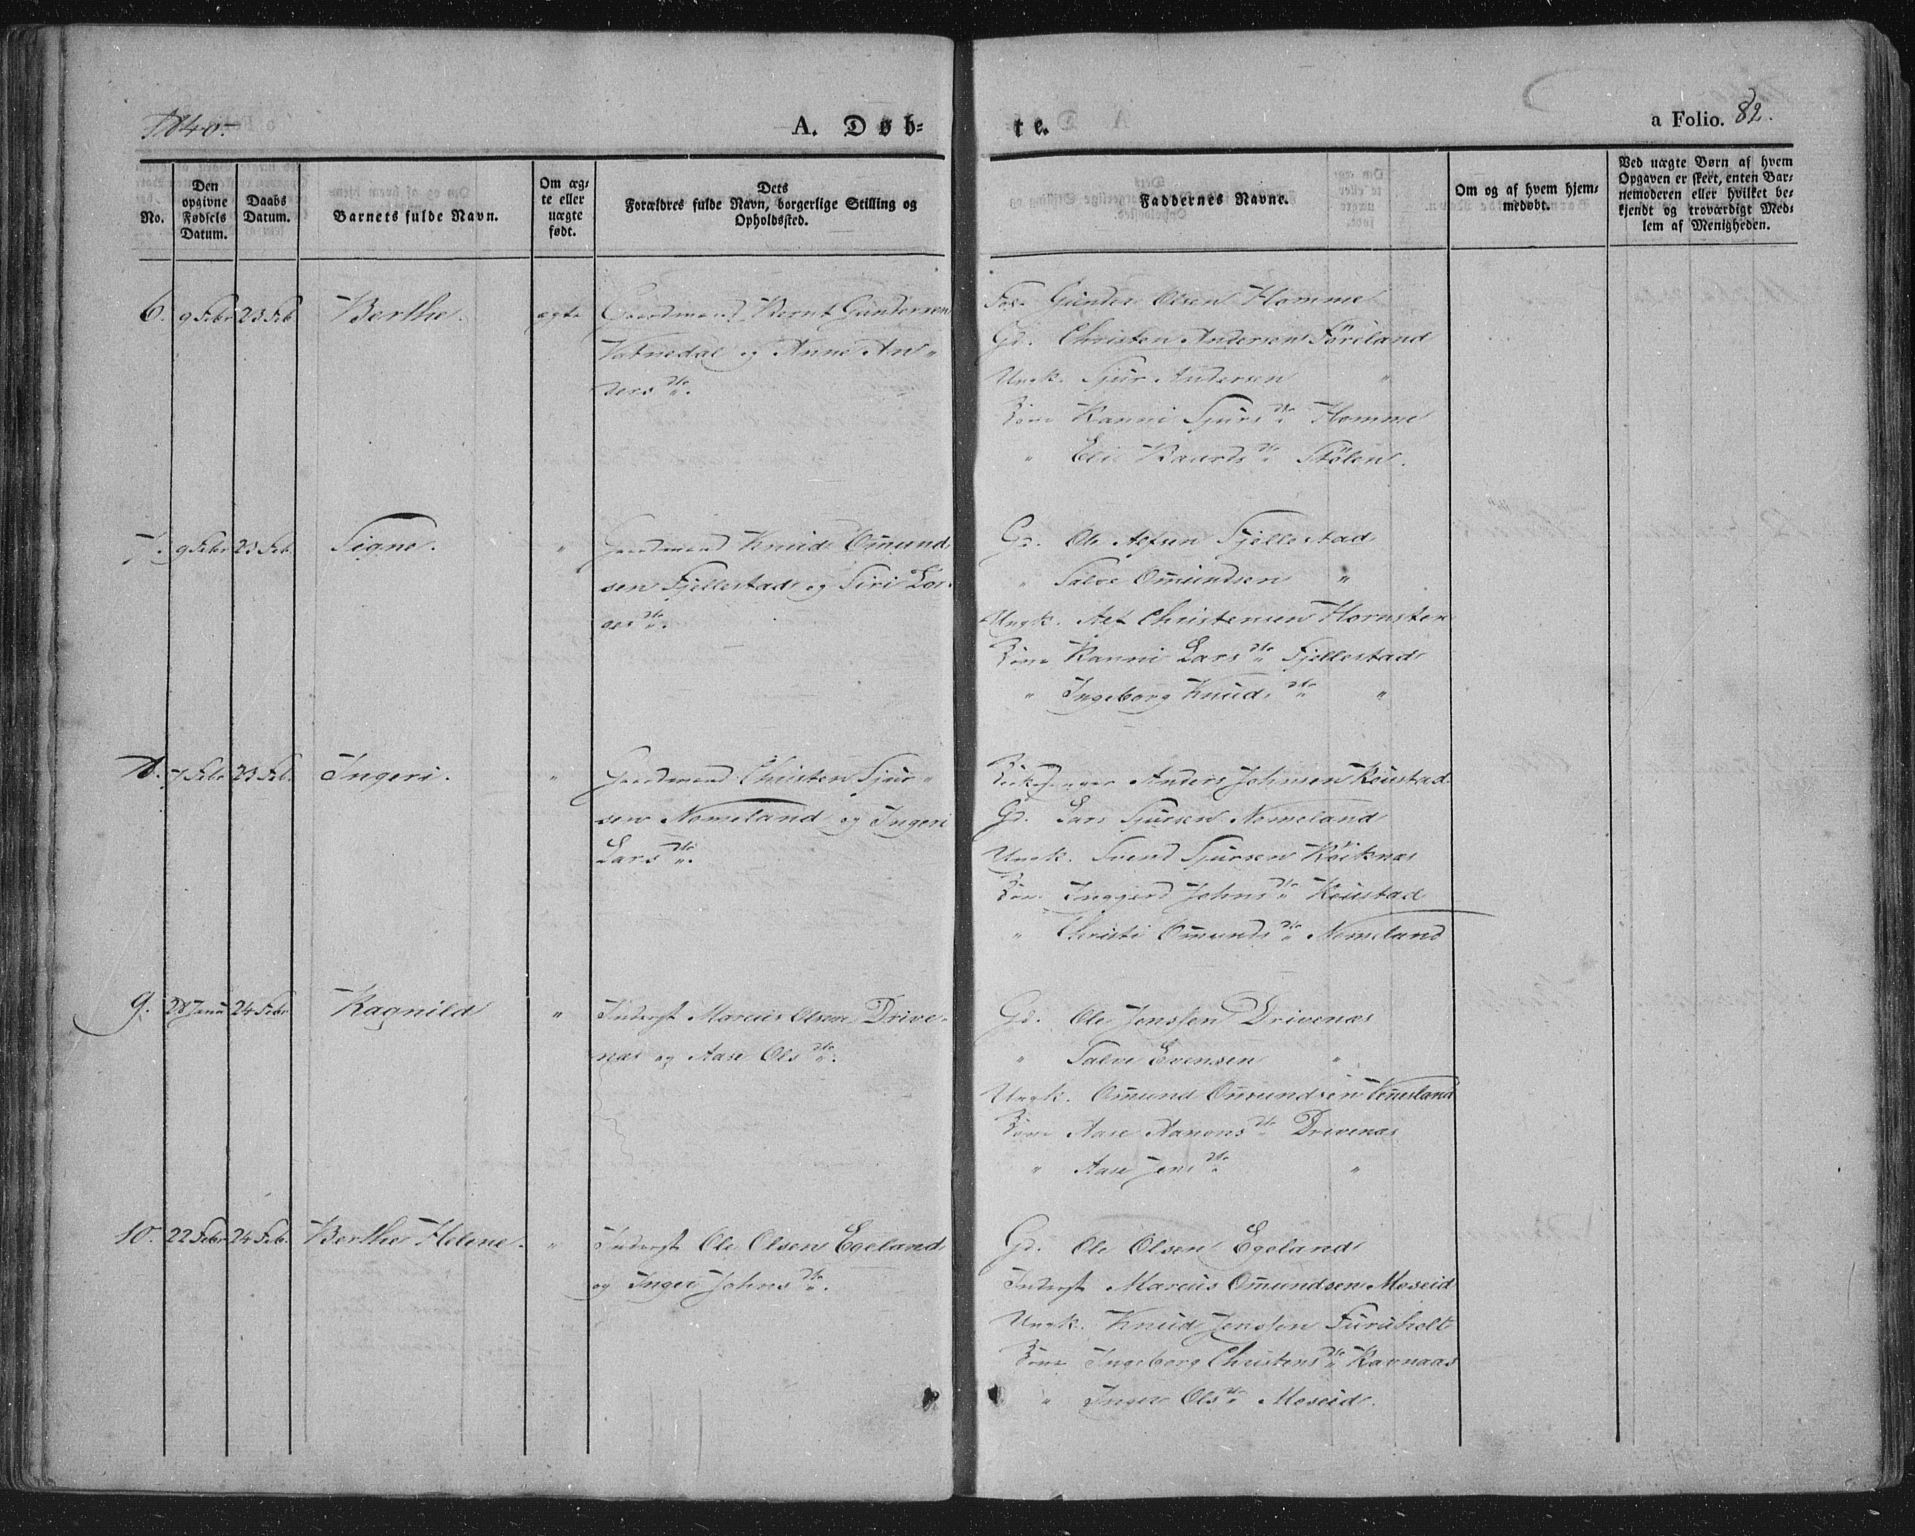 1840.
A. Døb-
te.
a Folio. 82.
No.
Den opgivne Fødsels Datum.
Daabs Datum.
Barnets fulde Navn.
Om ægte eller uægte født.
Dets Forældres fulde Navn, borgerlige Stilling og Opholdssted.
Faddernes Navne.
Om og af hvem hjemmedøbt.
Ved uægte Børn af hvem Opgaven er skeet, enten Barnemoderen eller hvilket bekjendt og troværdigt Medlem af Menigheden.
6. 9 Febr 23 Feb Berthe. ægte Gaardmand Bernt Gundersen
Vatnedal og Anne An„
dersdtr.
Gunder Olsen Homme
Gd. Christen Andersen Föreland
Ungk. Sjur Andersen "
Kone Ranni Sjursdtr Homme
" Eli Baardsdtr Stölen.
7. 9 Febr 23 Feb. Signe. " Gaardmand Knud Omund
sen Fjellestad og Siri Lar
sesdtr.
Gd. Ole Alfsen Fjellestad
" Salve Omundsen "
Ungk. Alf Christensen Hornsten
Kone Ranni Larsdtr Fjellestad
" Ingeborg Knudsdtr "
8. 7 Feb 23 Feb. Ingeri. " Gaardmand Christen Sjur„
sen Nomeland og Ingeri
Larsdtr.
Kirkesanger Anders Johnsen Reiestad
Gd. Lars Sjursen Nomeland
Ungk. Svend Sjursen Röiknes
Kone Inggjerd Johnsdtr Reiestad
" Christi Omundsdtr Nomeland
9. 28 Janu 24 Febr Ragnild " Inderst Marcus Olsen Drive„
næs og Aase Olsdtr.
Gd. Ole Jenssen Drivenæs
" Salve Evensen "
Ungk. Omund Omundsen Venesland
Kone Aase Aanonsdtr Drivenæs
" Aase Jensdtr "
10. 22 Febr 24 Feb. Berthe Helene. " Inderst Ole Olsen Egeland
og Inger Johnsdtr.
Gd. Ole Olsen Egeland
Inderst Marcus Omundsen Moseid
Ungk. Knud Jenssen Furuholt
Kone Ingeborg Christensdtr Ravnaas
" Inger Olsdtr Moseid.